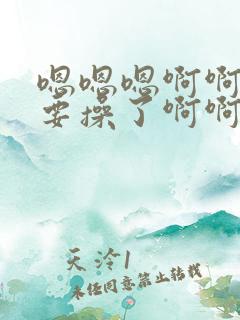 嗯嗯嗯啊啊
要操了啊啊
天泠1
未经同意禁止转载